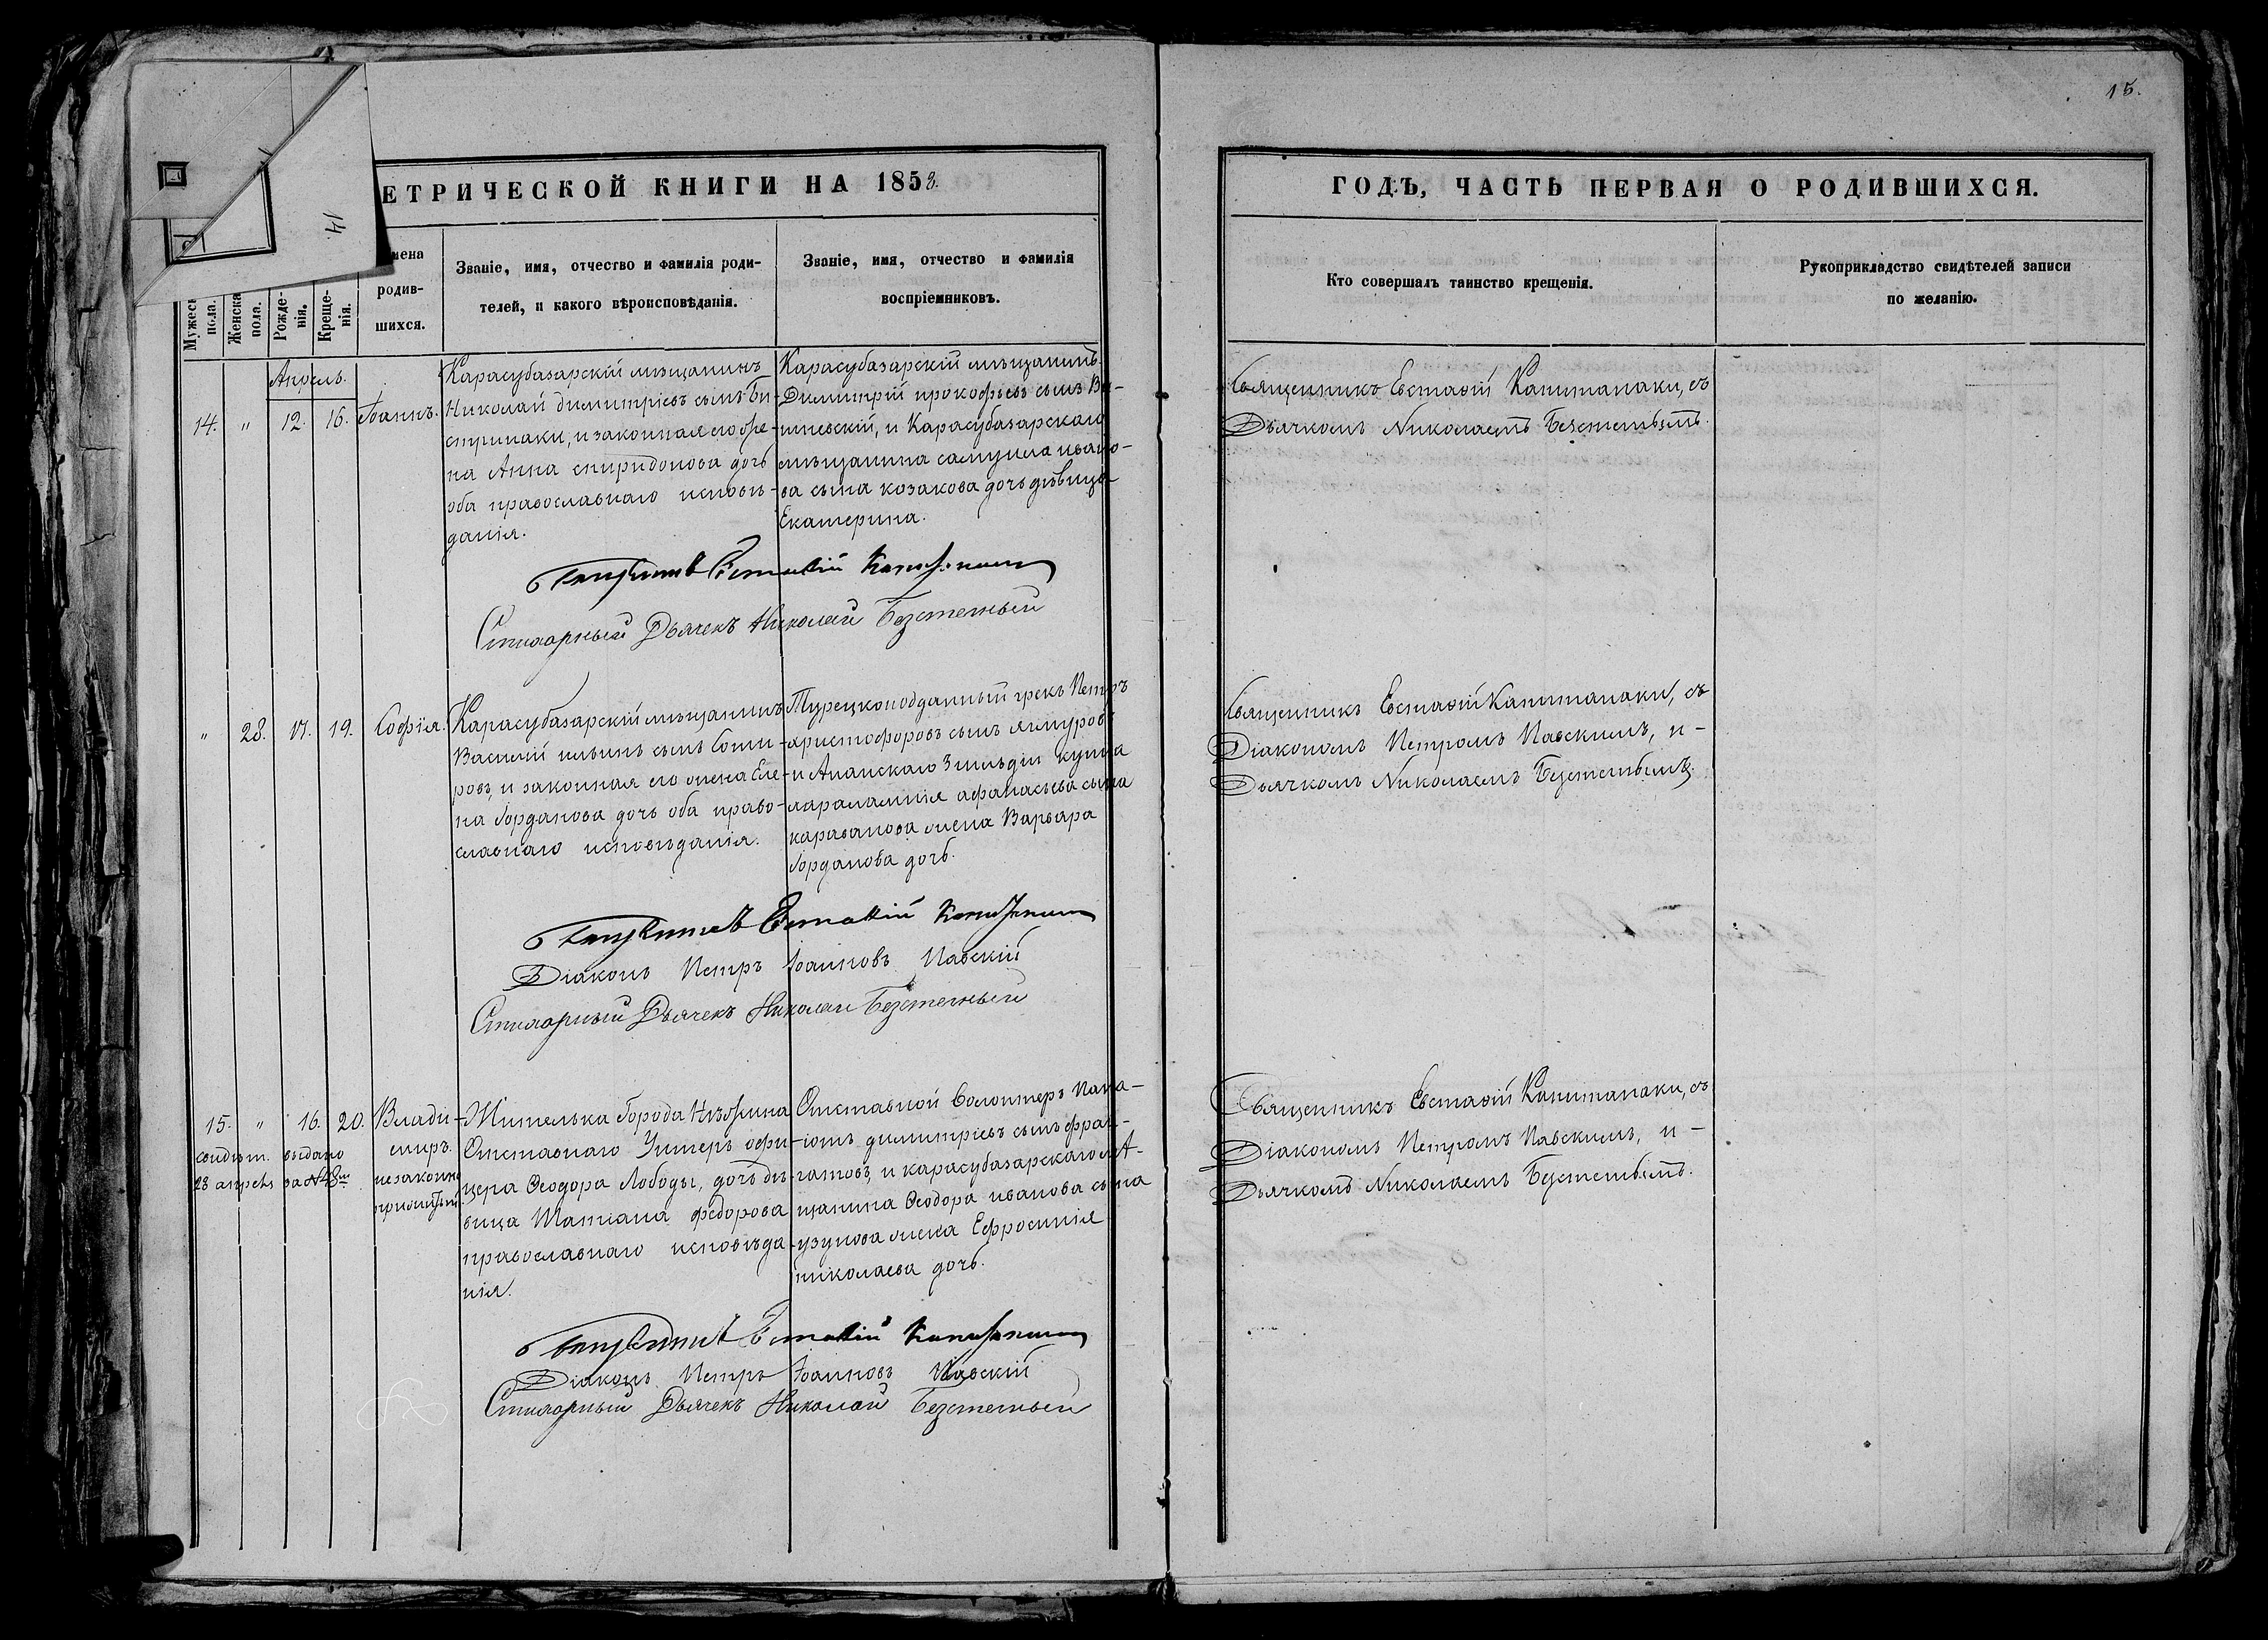 15.
14.
ЕТРИЧЕСКОЙ КНИГИ НА 1858.
ГОДЪ, ЧАСТЬ ПЕРВАЯ О РОДИВШИХСЯ.
пола.
Женска
пола.
Рожде-
нія.
Креще-
нія.
мена
родив-
шихся.
Званіе, имя, отчество и фамилія роди-
телей, и какого вѣроисповѣданія.
Званіе, имя, отчество и фамилія
воспріемниковъ.
Кто совершалъ таинство крещенія.
Рукоприкладство свидѣтелей записи
по желанію.
Апрель.
14. " 12. 16. Іоаннъ.
Карасубазарскій мѣщанинъ
Николай димитріевъ сынъ
и законная его
на Анна спиридонова дочь
оба православнаго исповѣ-
данія.
Карасубазарскій мѣщанинъ
Димитрій прокофьевъ сынъ
и Карасубазарскаго
мѣщанина самуила ивано-
ва сына козакова дочь дѣвица
Екатерина.
Священникъ Евстафій Капитанаки, съ
Дьячкомъ Николаемъ Безстетьимъ.
Священникъ Евстафій Капитанаки
Стихарный Дьячекъ Николай Безстетный
" 28. 17. 19. Софія.
Карасубазарскій мѣщанинъ
Василій ильинъ сынъ Соти-
ровъ, и законная его жена Еле-
на Іорданова дочь оба право-
славнаго исповѣданія.
Турецкоподданный грекъ Петръ
христофоровъ сынъ ягмуровъ
и Ананскаго 3 гильдіи купца
харалампія афанасьева сына
караванова жена Варвара
Іорданова дочь.
Священникъ Евстафій Капитанаки, съ
Діакономъ Петромъ Павскимъ, и -
Дьячкомъ Николаемъ
Священникъ Евстафій Капитанаки
Діаконъ Петръ Іоанновъ Павскій
Стихарный Дьячекъ Николай Безстетный
15. " 16. 20. Влади-
миръ.
незаконно
прижитый
свидѣт. выдано
28 апрель за №
Жителька Города Нѣжина
Отставнаго Унтеръ офи-
цера Ѳеодора Лободы, дочь дѣ-
вица Татіана федорова
православнаго исповѣда-
нія.
Отставной Волонтеръ Пана-
іотъ димитріевъ сынъ фран-
гатовъ, и карасубазарскаго мѣ-
щанина Ѳеодора иванова сына
узунова жена Ефросинія
николаева дочь.
Священникъ Евстафій Капитанаки, съ
Діакономъ Петромъ Павскимъ, и -
Дьячкомъ Николаемъ
Священникъ Евстафій Капитанаки
Діаконъ Петръ Іоанновъ Павскій
Стихарный Дьячекъ Николай Безстетный